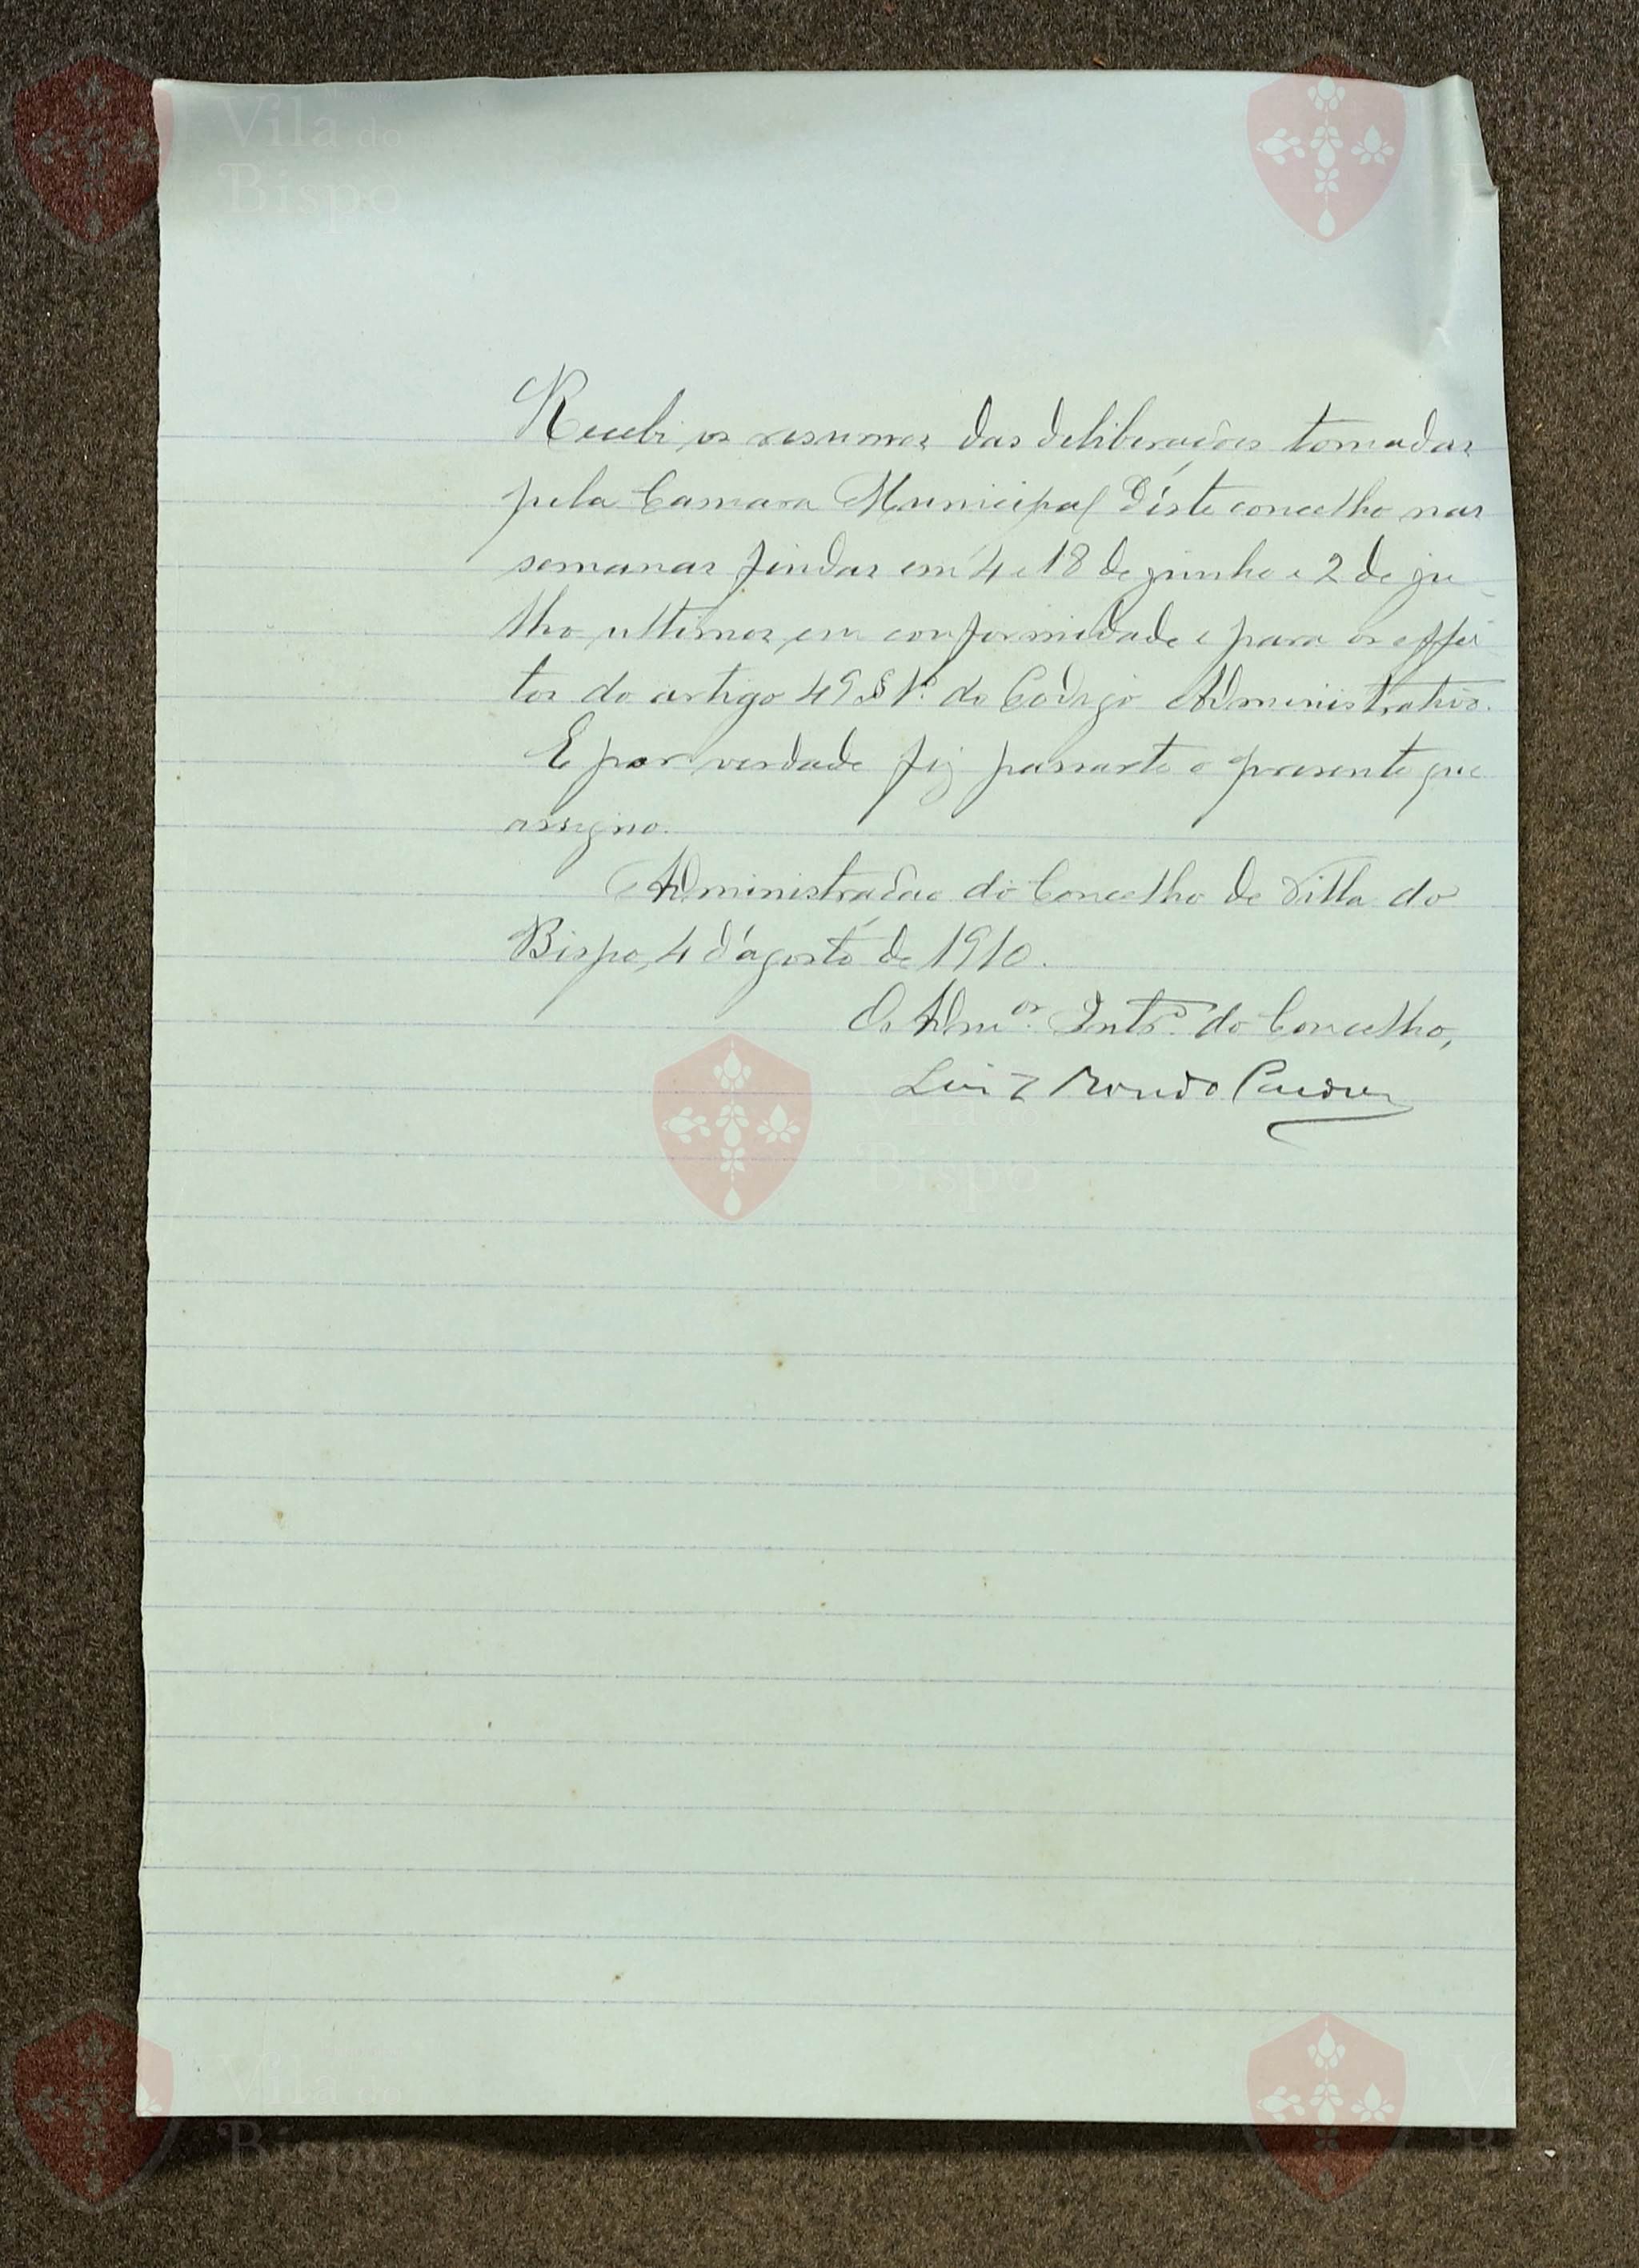 Recebi os resumos das deliberações tomadas
pela Camara Municipal d'este concelho nas
semanas findas em 4 e 18 de junho e 2 de ju-
lho ultimos, em conformidade e para os effei
tos do artigo 49 § 1º do Codigo Administrativo.
E por verdade fiz passar o presente que
assigno.
Administração do Concelho de Villa do
Bispo, 4 d'agosto de 1910.
O Admor. Intº. do Concelho,
Luiz
Vila do
Bispo